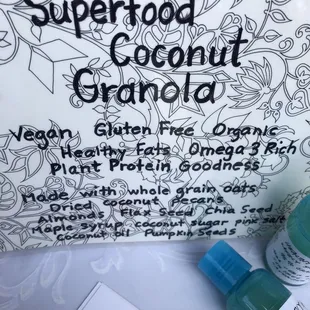 Superfood
Coconut
Granola
Vegan Gluten Free Organic
Healthy Fats Omega 3 Rich
Plant Protein Goodness
Made with whole grain oats
Dried coconut pecans
Almonds Flax Seed Chia Seed
Maple Syrup coconut sugar pink salt
coconut oil Pumpkin Seeds